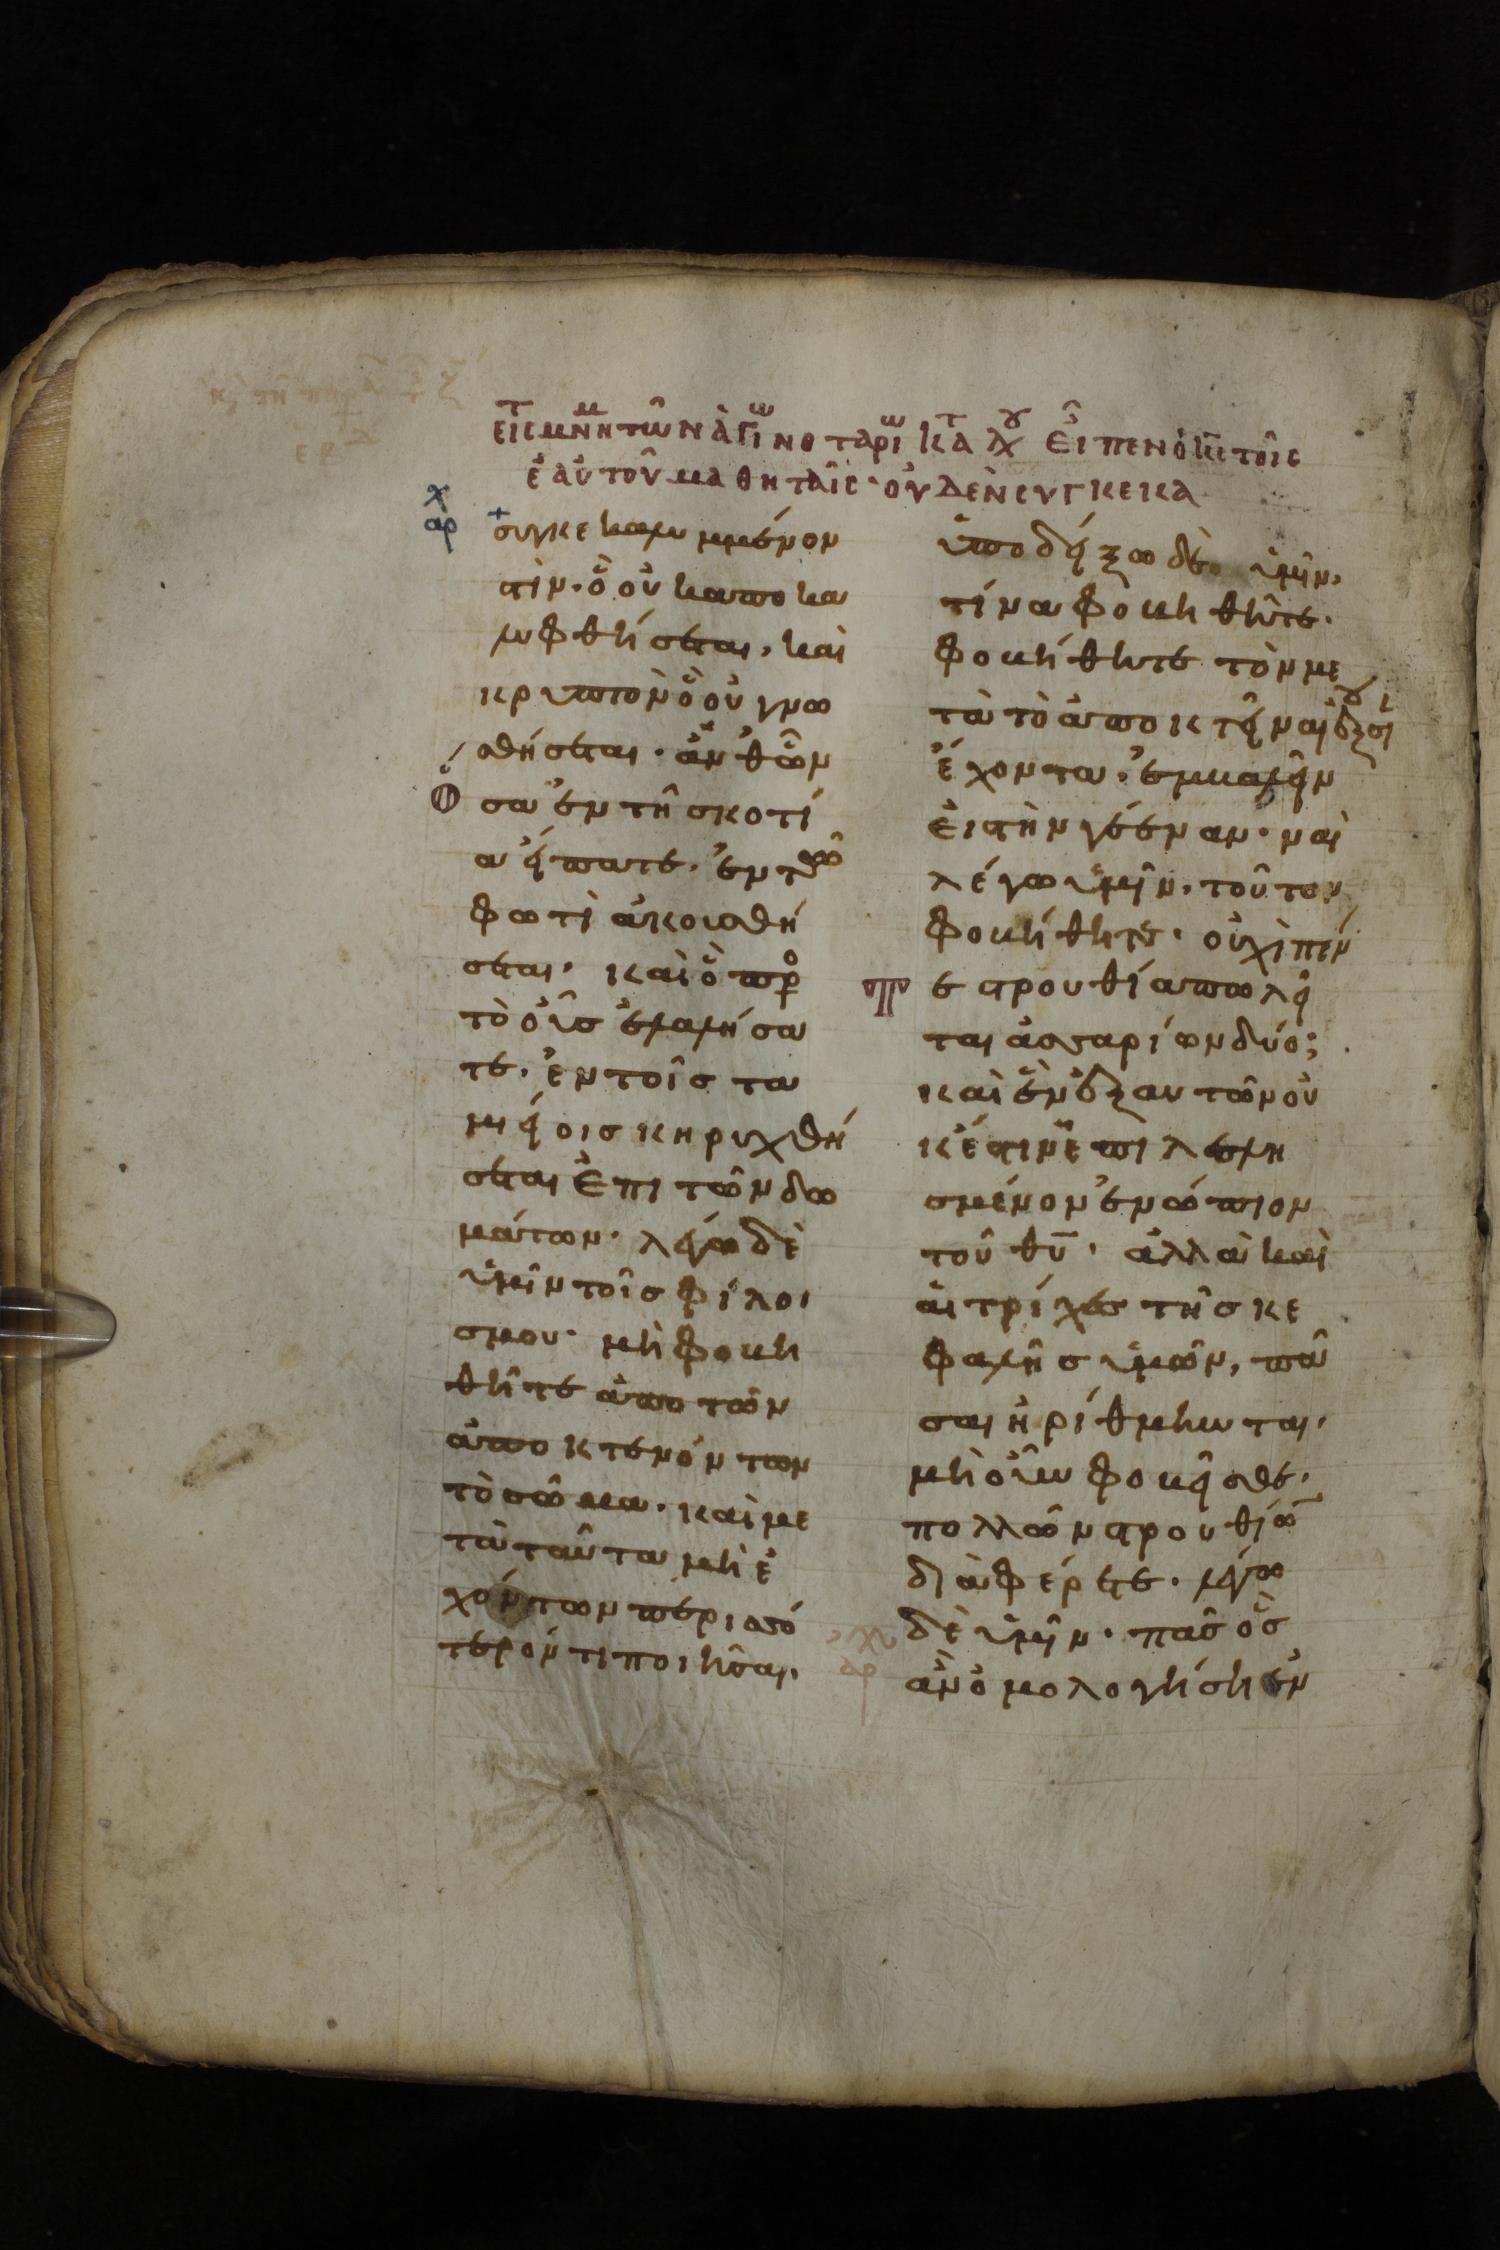 εἰς μνήμην τῶν ἁγίων νοταρίων κατὰ Λουκ Εἶπεν ὁ κς τοῖς
ἑαυτοῦ μαθηταῖς· οὐδὲν συγκεκα
αρχ
συγκεκαλυμμένον
στὶν· ὃ οὐκ αποκα
λυφθήσεται, καὶ
κρυπτὸν ὃ οὐ γνω
σθήσεται. ἀνθῶν
ὅσα ἐν τῆ σκοτί
α εἴπατε. ἐν τῶ
φωτὶ ἀκουσθή
σεται, καὶ ὃ πρὸ
τὸ οὖς ἐλαλήσα
τε. ἐν τοῖς τα
μείοις κηρυχθή
σεται ἐπι τῶν δω
μάτων. λέγω δὲ
ὑμῖν τοῖς φίλοι
ς μου· μὴ φοβη
θῆτε ἀπο τῶν
ἀποκτενόντων
τὸ σῶμα. καὶ με
τὰ ταῦτα μὴ ἐ
χόντων περισσό
τερόν τι ποιῆσαι.
ὑποδείξω δὲ ὑμῖν,
τίνα φοβηθῆτε.
φοβήθητε τὸν με
τὰ τὸ ἀποκτεῖναι ἐξουσί
ἔχοντα. ἐμβαλεῖν
εἰς τὴν γέεναν. ναὶ
λέγω ὑμῖν, τοῦτον
φοβήθητε. οὐχὶ πέν
τε στρουθία πωλεῖ
ται ἀσσαρίων δύο;
καὶ ἓν ἐξ αυτῶν οὐ
κ ἔστιν ἐπιλελη
σμένον ἐνώπιον
τοῦ θυ. ἀλλὰ καὶ
αἱ τρίχες τῆς κε
φαλῆς ὑμῶν, πᾶ
σαι ἠρίθμηνται,
μὴ οὖν φοβεῖσθε,
πολλῶν στρουθίων
διαφέρετε. λέγω
δὲ ὑμῖν. πᾶς ὃς
ἂν ὁμολογήση ἐν